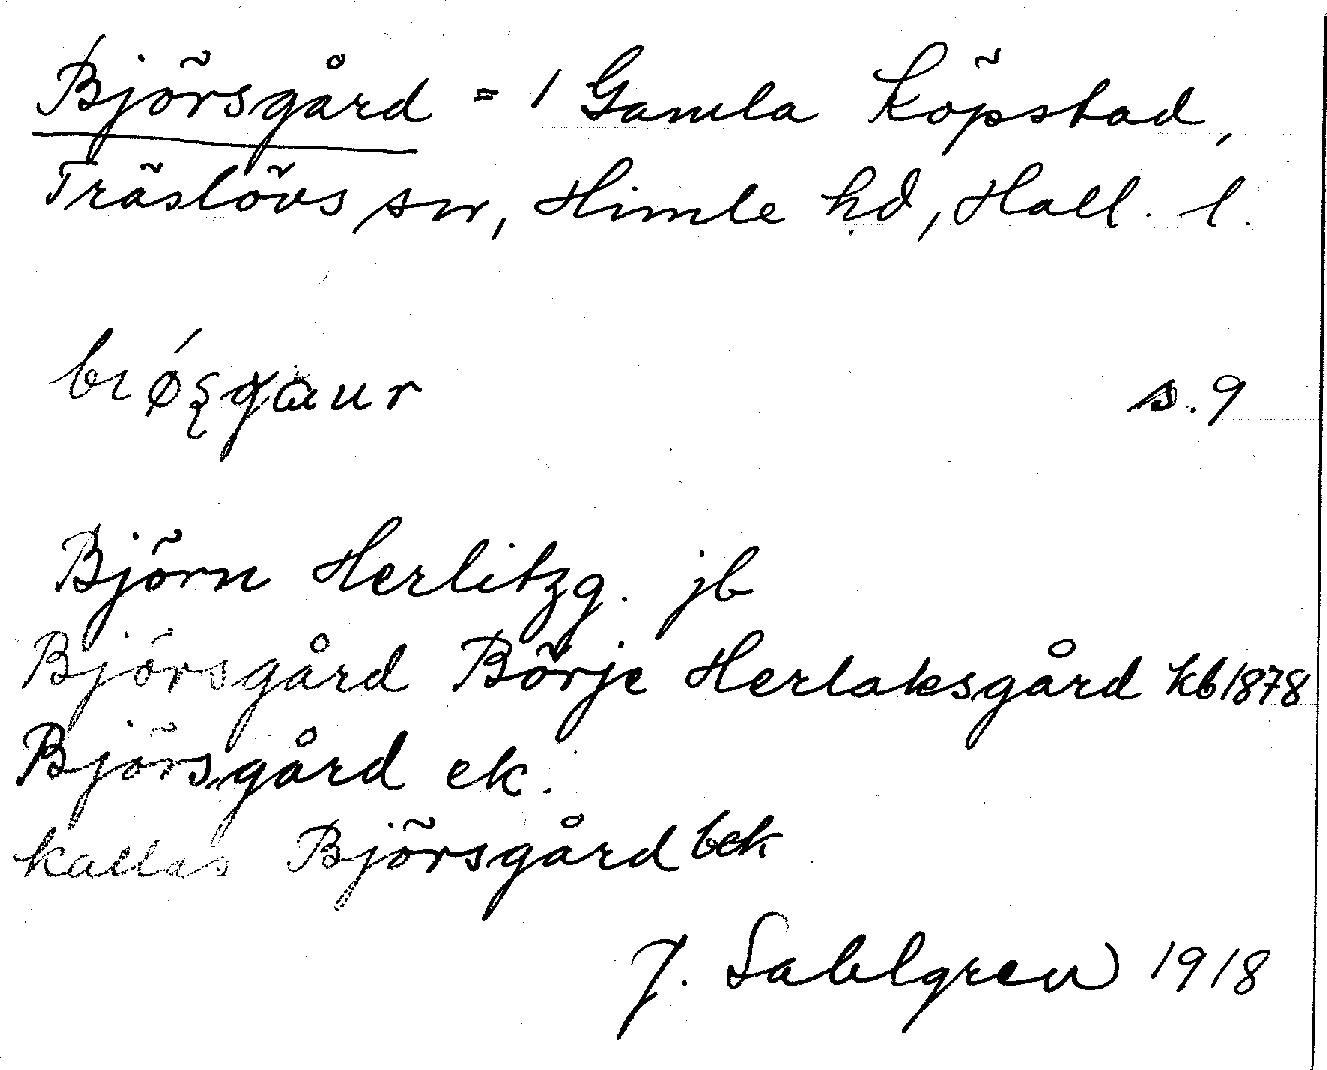 Björsgård = 1 Gamla Köpstad,
Träslövs sn, Himle hd, Hall. l.
s. 9
Björn Herlitzg. jb
Björsgård Börje Herlaksgård kb 1878
Björsgård ek.
kallas Björsgård bek
J. Sahlgren 1918